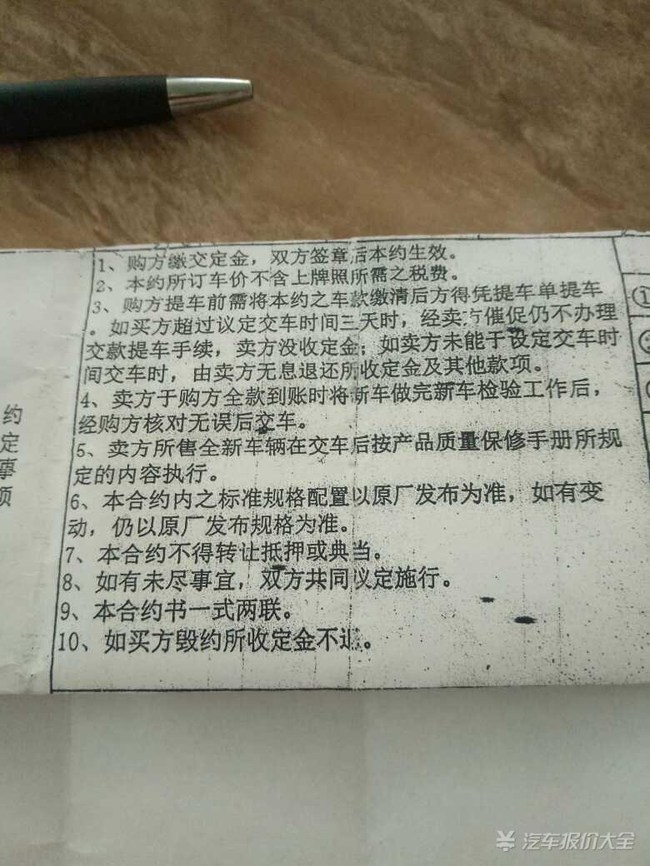 1、购方缴交定金，双方签章后本约生效。
2、本约所订车价不含上牌照所需之税费。
3、购方提车前需将本约之车款缴清后方得凭提车单提车
。如买方超过议定交车时间三天时，经卖方催促仍不办理
交款提车手续，卖方没收定金；如卖方未能于设定交车时
间交车时，由卖方无息退还所收定金及其他款项。
4、卖方于购方全款到账时将新车做完新车检验工作后，
经购方核对无误后交车。
5、卖方所售全新车辆在交车后按产品质量保修手册所规
定的内容执行。
6、本合约内之标准规格配置以原厂发布为准，如有变
动，仍以原厂发布规格为准。
7、本合约不得转让抵押或典当。
8、如有未尽事宜，双方共同议定施行。
9、本合约书一式两联。
10、如买方毁约所收定金不退。
约
定
事
项
①
汽车报价大全